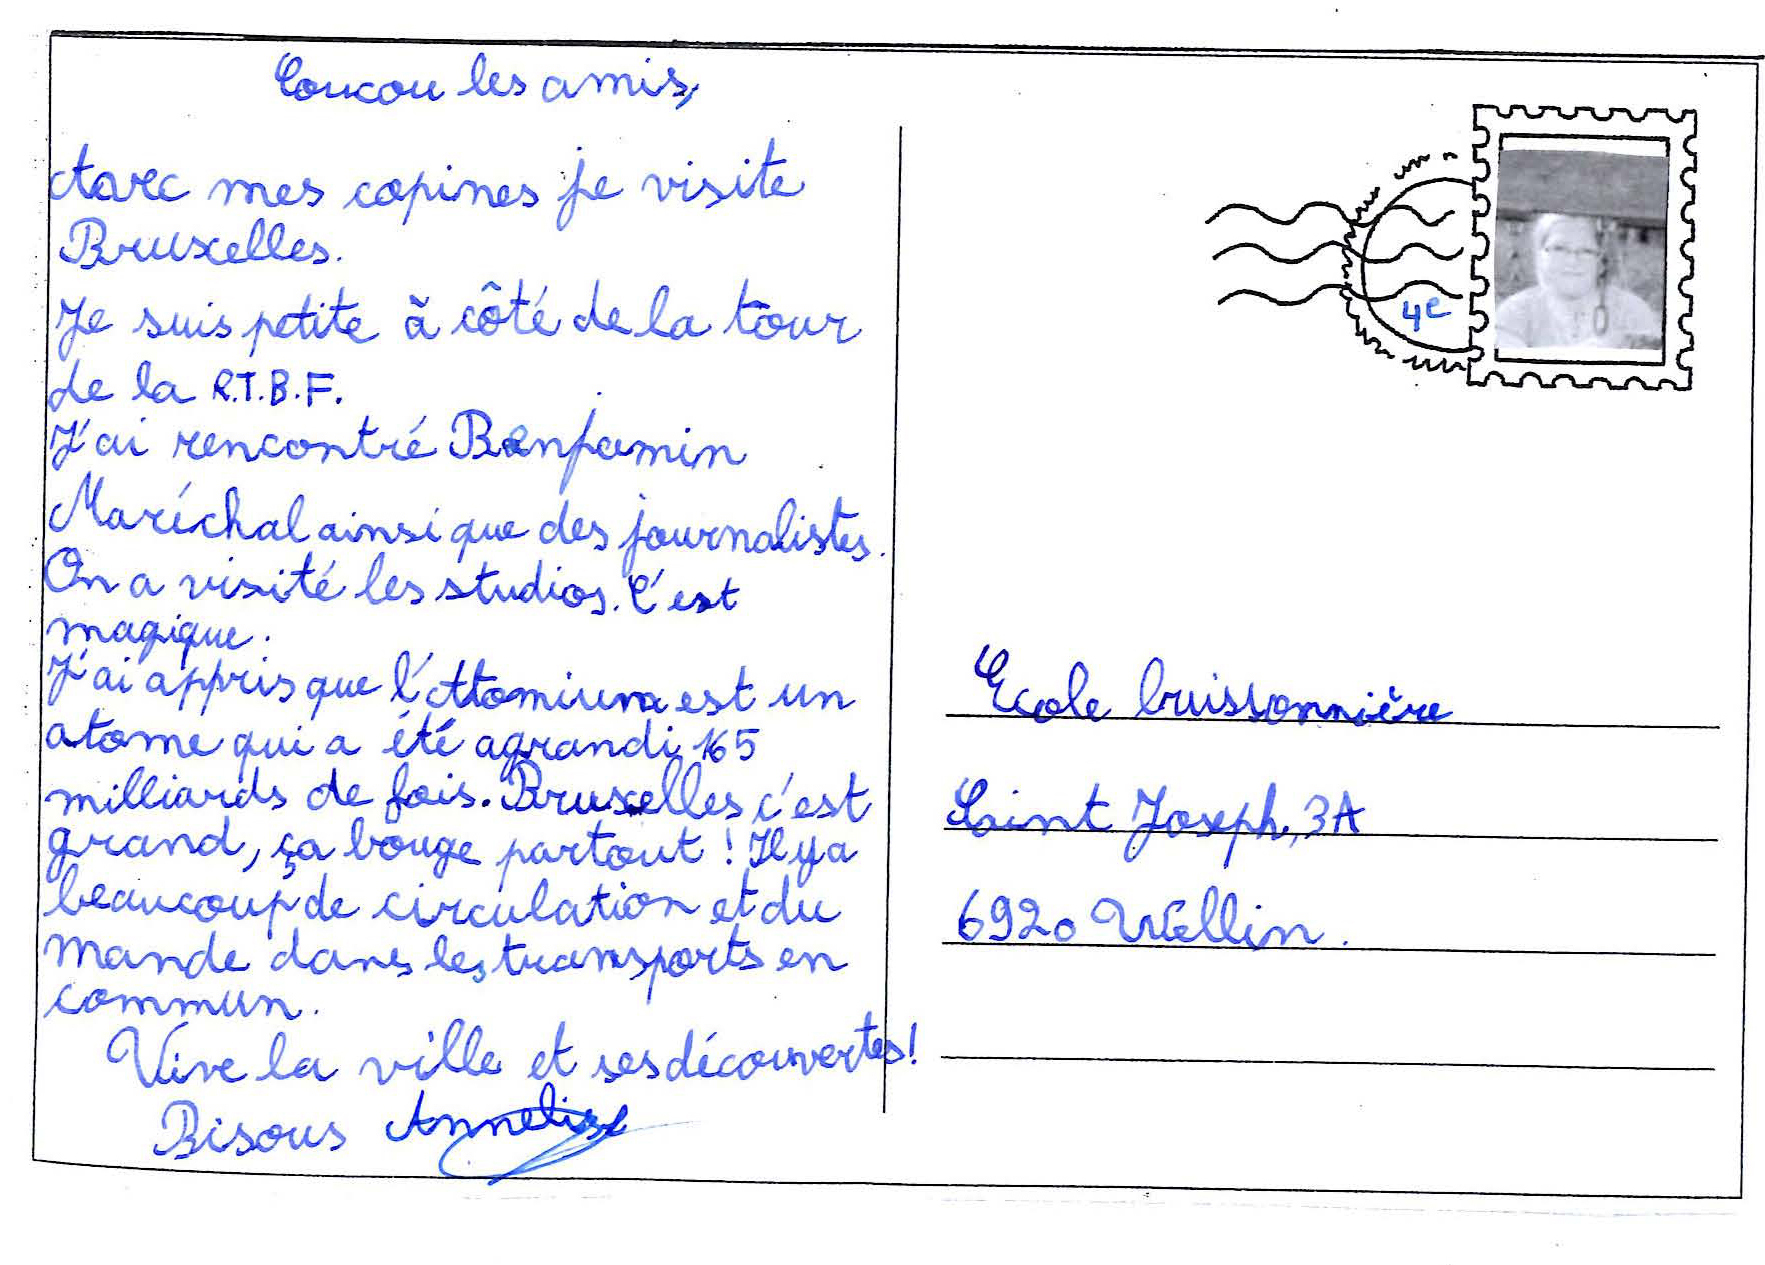 Coucou les amis,
Avec mes copines je visite
Bruxelles.
Je suis petite à côté de la tour
de la R.T.B.F.
J'ai rencontré Benjamin
Maréchal ainsi que des journalistes.
On a visité les studios. C'est
magique.
J'ai appris que l'Atomium est un
atome qui a été agrandi 165
milliards de fois. Bruxelles c'est
grand, ça bouge partout ! Il y a
beaucoup de circulation et du
monde dans les transports en
commun.
Vive la ville et ses découvertes !
Bisous Annelise
4e
Ecole buissonnière
Saint Joseph, 3A
6920 Wellin.